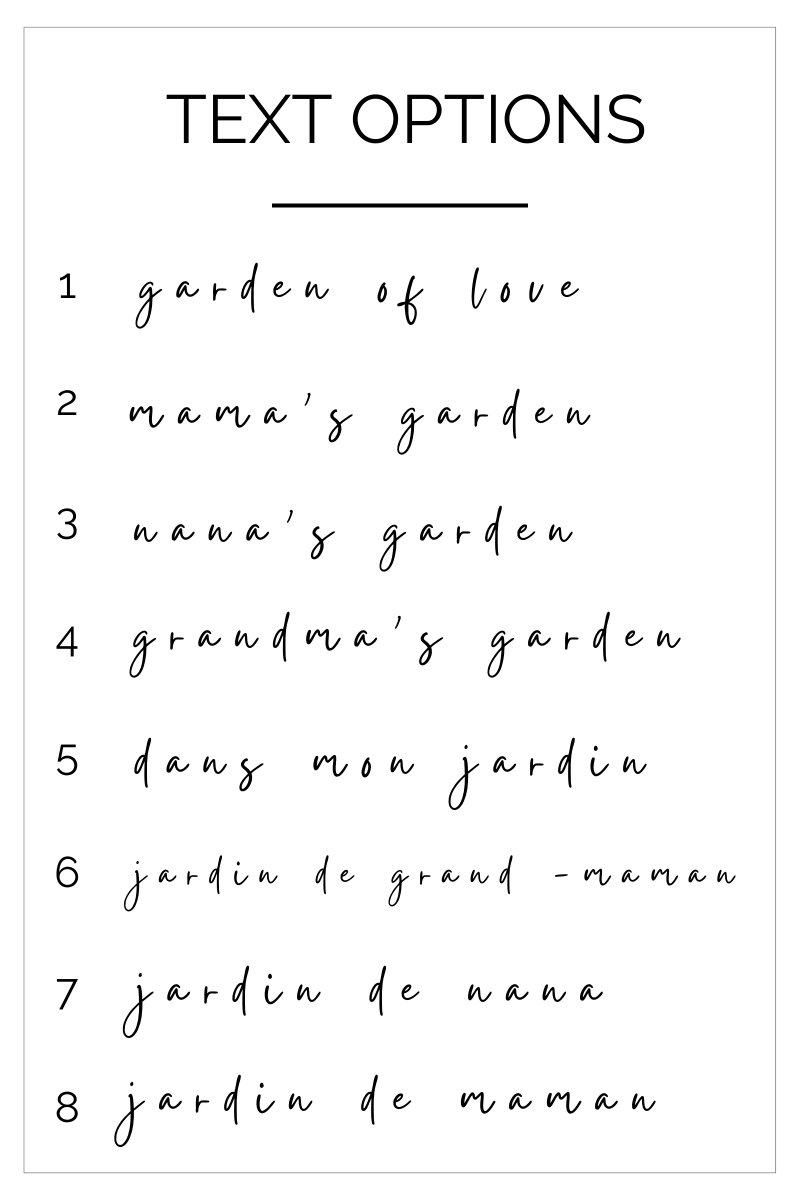 TEXT OPTIONS
1 garden of love
2 mama's garden
3 nana's garden
4 grandma's garden
5 dans mon jardin
6 jardin de grand -maman
7 jardin de nana
8 jardin de maman